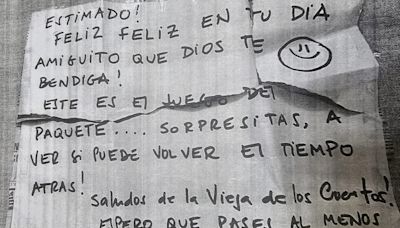 ESTIMADO!
FELIZ FELIZ EN TU DIA
AMIGUITO QUE DIOS TE
BENDIGA!
ESTE ES EL JUEGO DEL
PAQUETE.... SORPRESITAS, A
VER SI PUEDE VOLVER EL TIEMPO
ATRAS!
Saludos de la Vieja de los Cuentos!
ESPERO QUE PASES AL MENOS